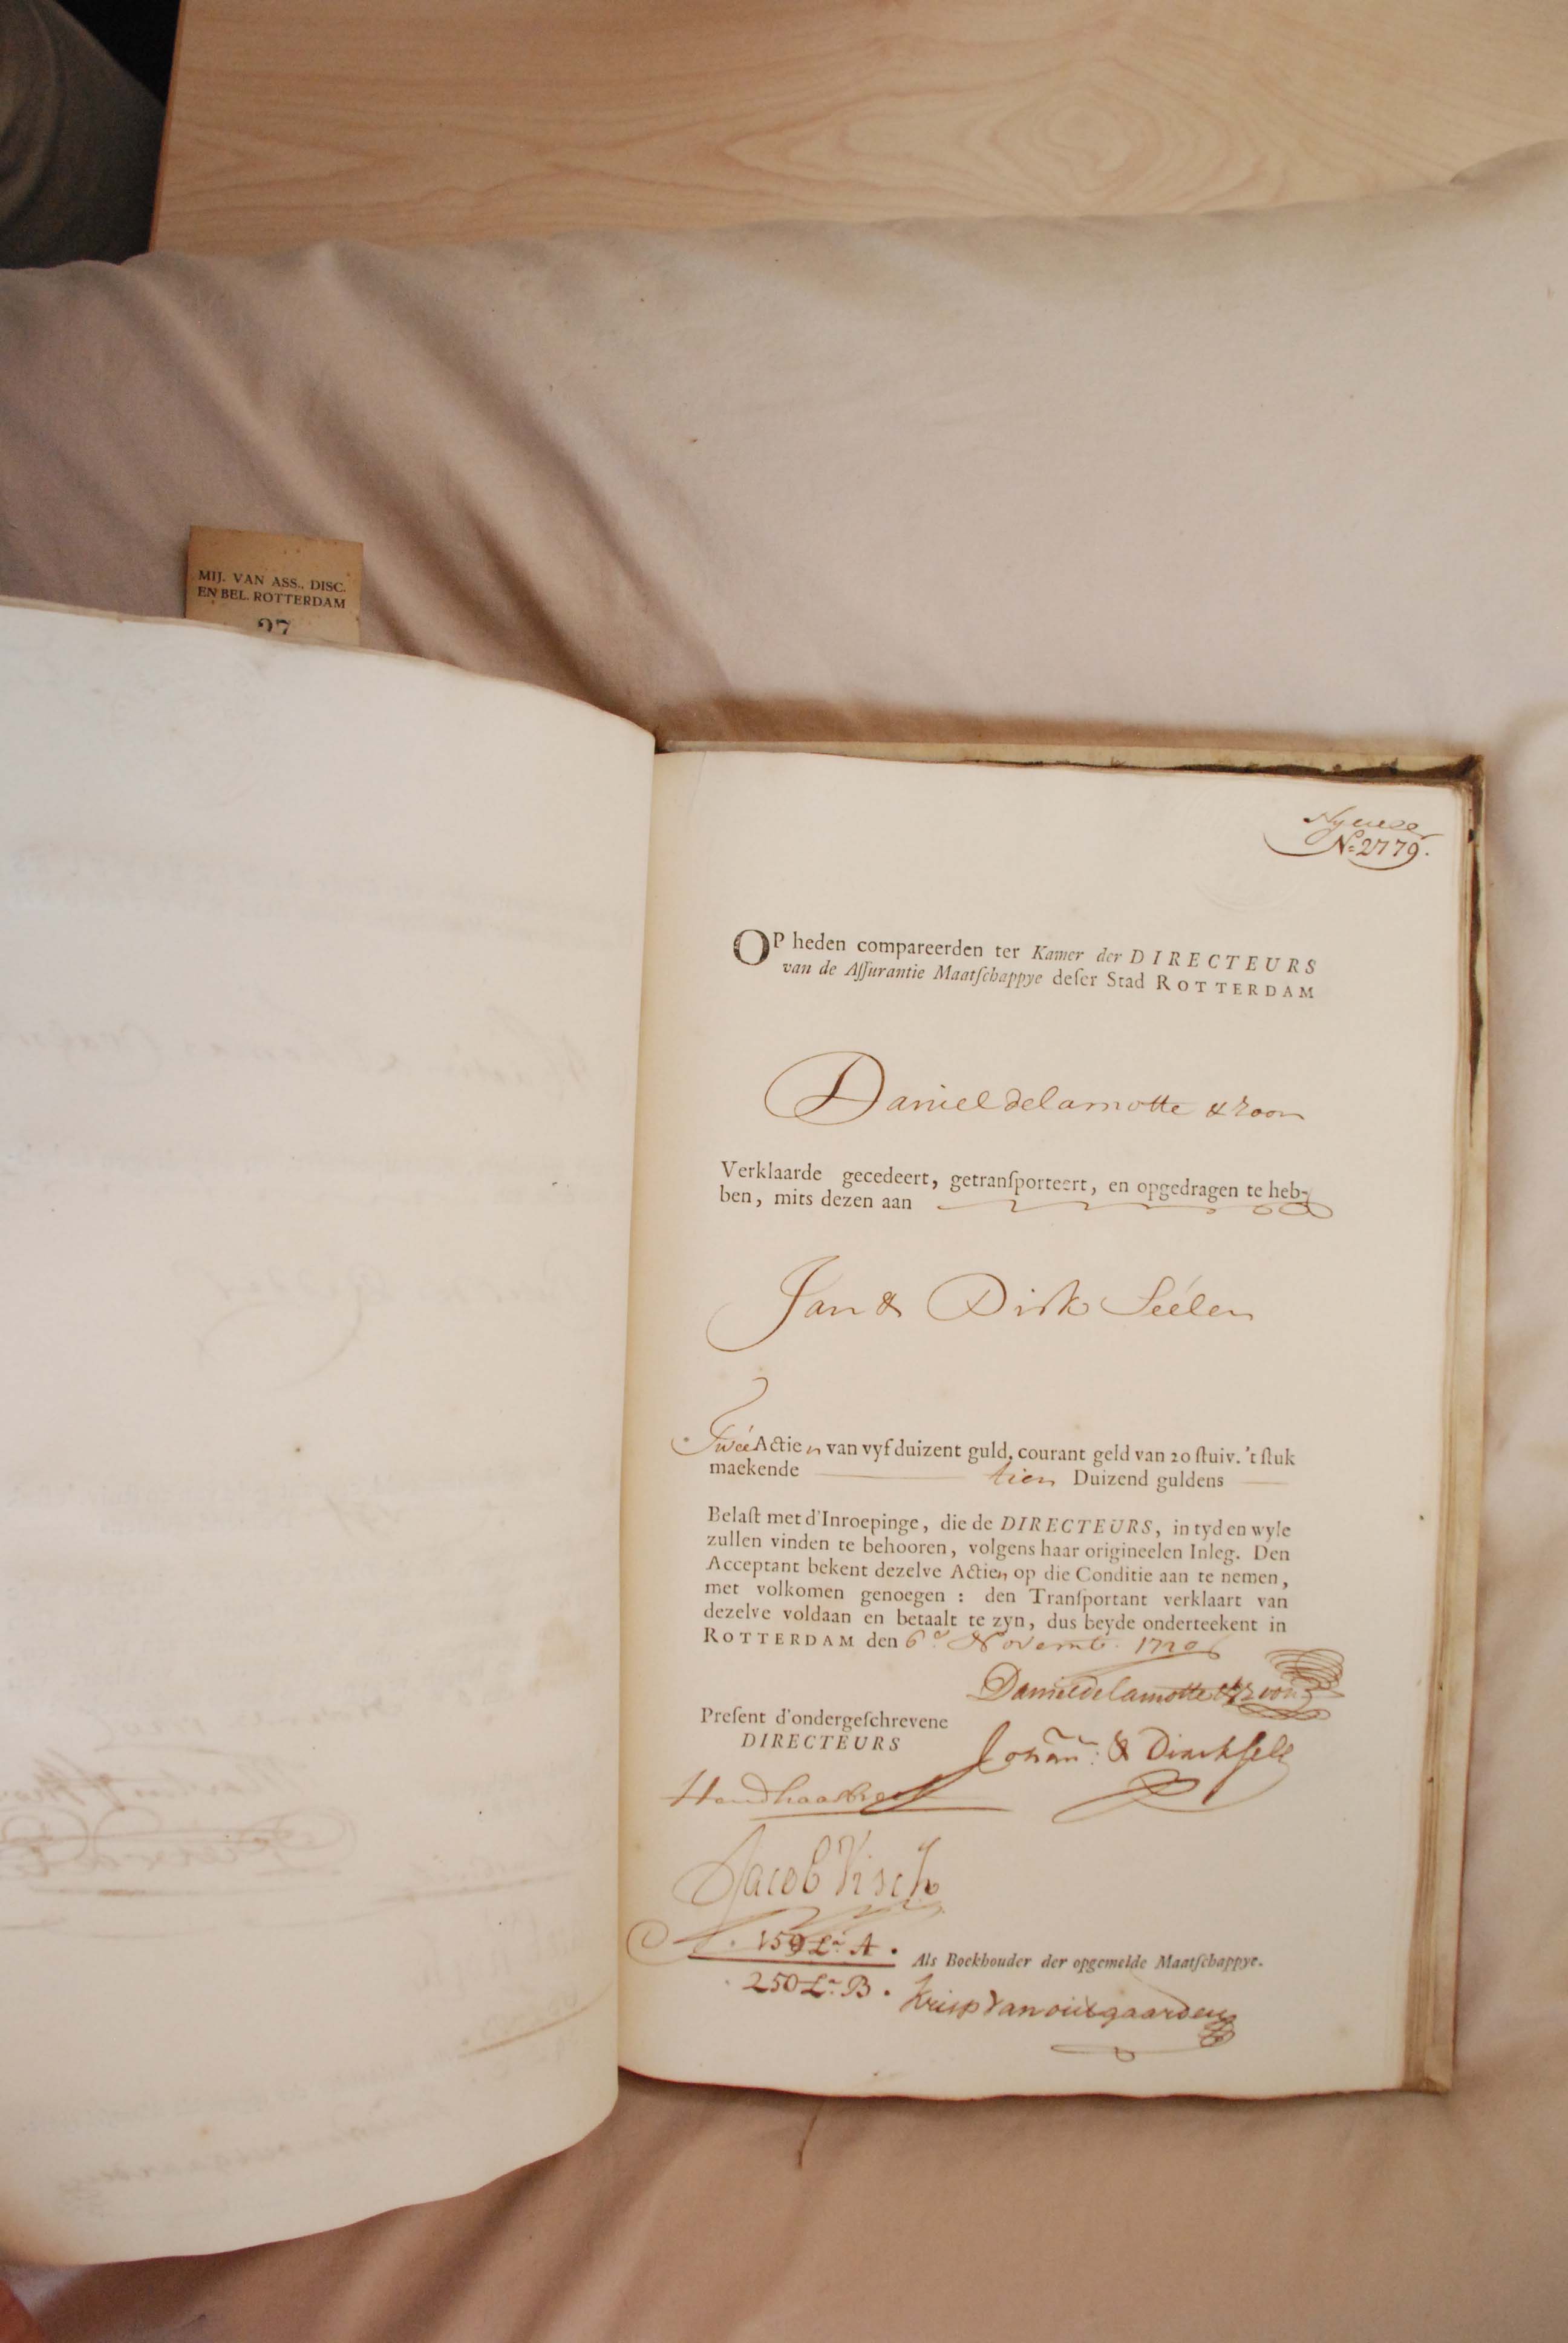 MIJ. VAN ASS., DISC.
EN BEL. ROTTERDAM
27
No 2779.
OP heden compareerden ter Kamer der DIRECTEURS
van de Aſſurantie Maatſchappye deſer Stad ROTTERDAM
Daniel delamotte & zoon
Verklaarde gecedeert, getranſporteert, en opgedragen te heb-
ben, mits dezen aan
Jan & Dirk Séélen
Twéé Actien van vyf duizent guld, courant geld van 20 ſtuiv. 't ſtuk
maekende tien Duizend guldens
Belaſt met d'Inroepinge, die de DIRECTEURS, in tyd en wyle
zullen vinden te behooren, volgens haar origineelen Inleg. Den
Acceptant bekent dezelve Actien op die Conditie aan te nemen,
met volkomen genoegen : den Tranſportant verklaart van
dezelve voldaan en betaalt te zyn, dus beyde onderteekent in
ROTTERDAM den 6e Novemb. 1720
Daniel delamotte & zoon
Preſent d'ondergeſchrevene
DIRECTEURS
Johan: & Dirck
Jacob Visch
159 La A.
Als Boekhouder der opgemelde Maatſchappye.
250 La B.
Krisp Van outgaarden